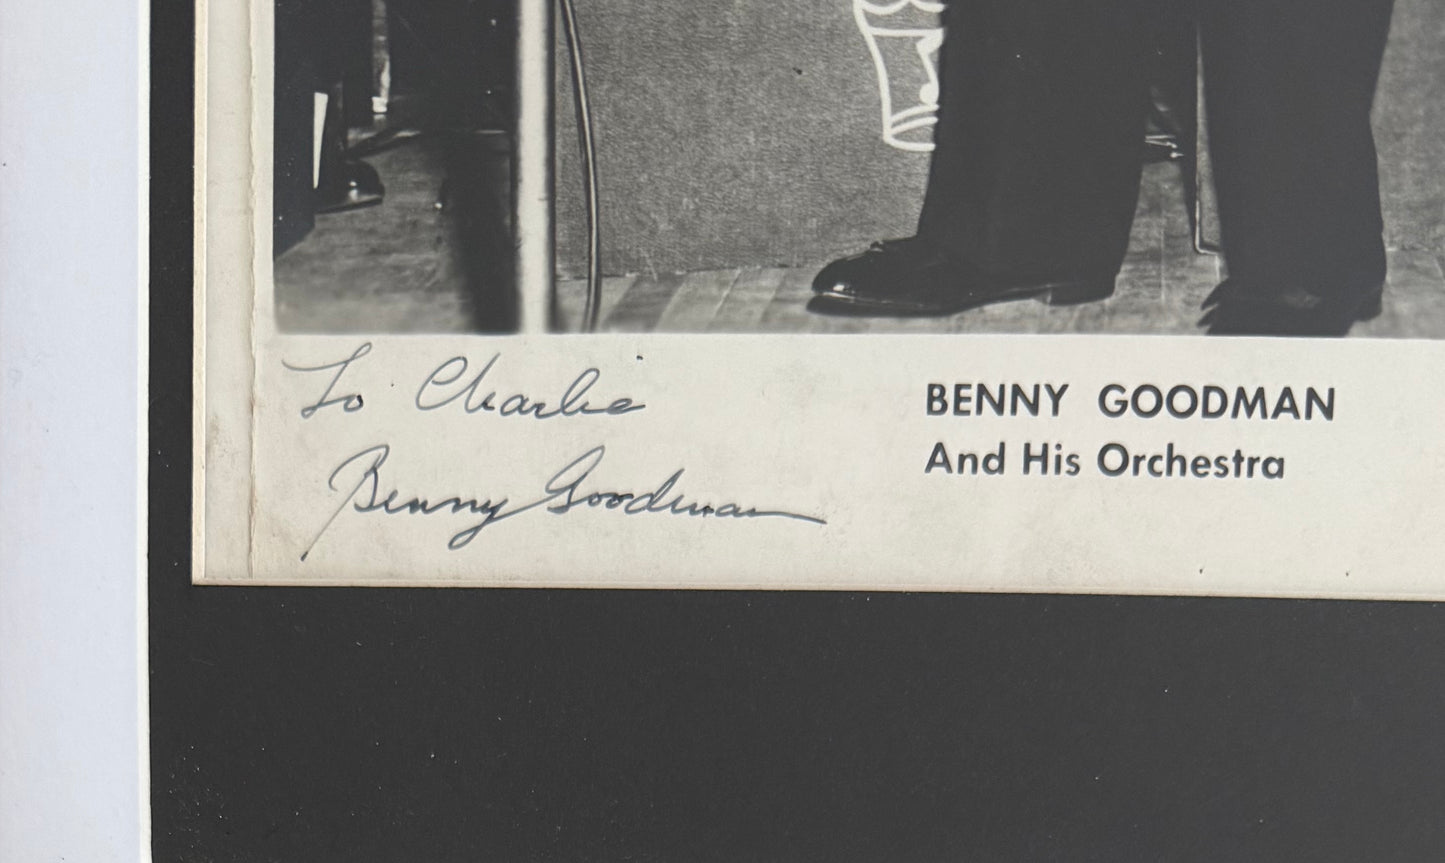 To Charlie
Benny Goodman
BENNY GOODMAN
And His Orchestra